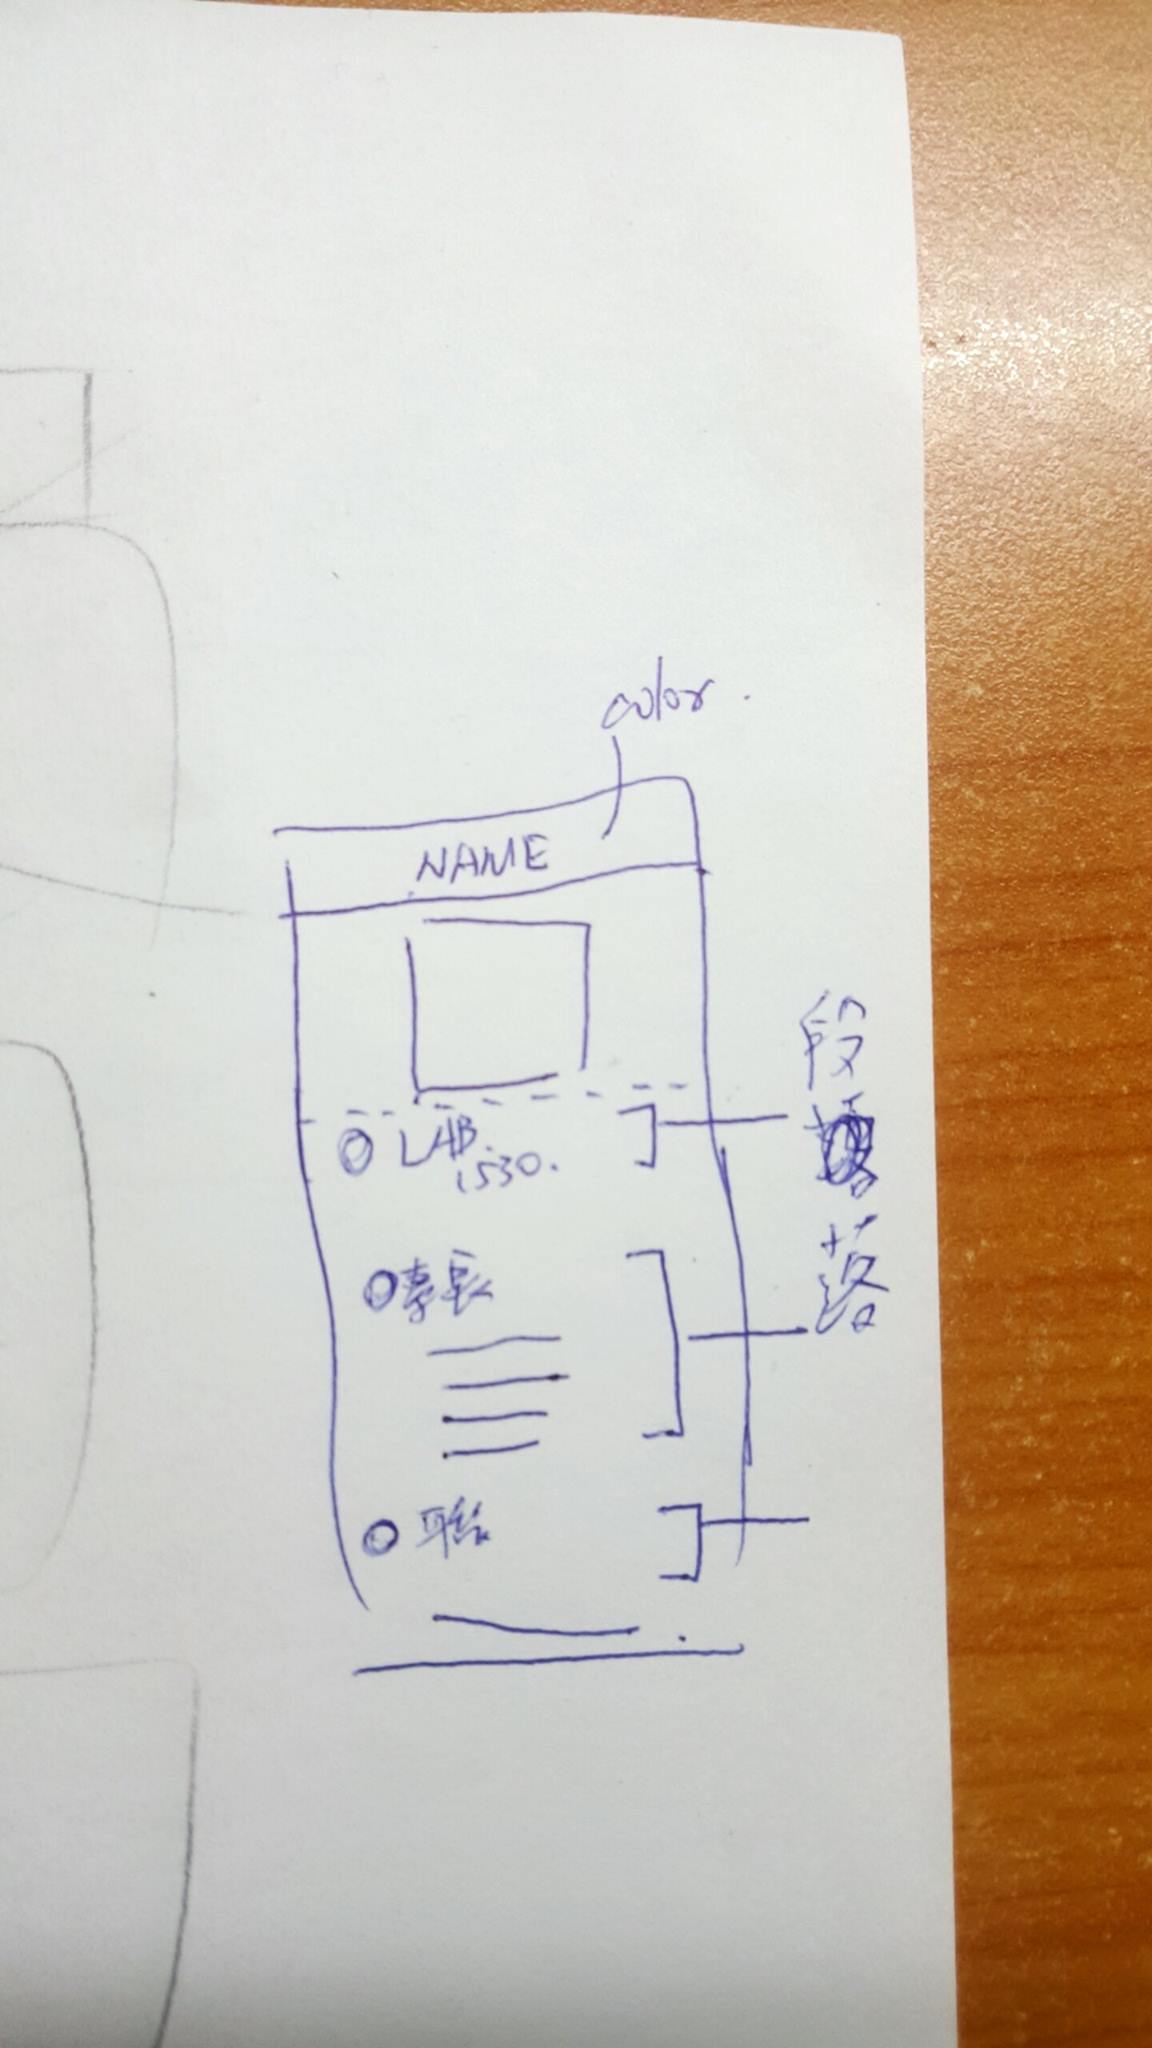 color.
NAME
LAB
1530.
專長
聯絡
段
落